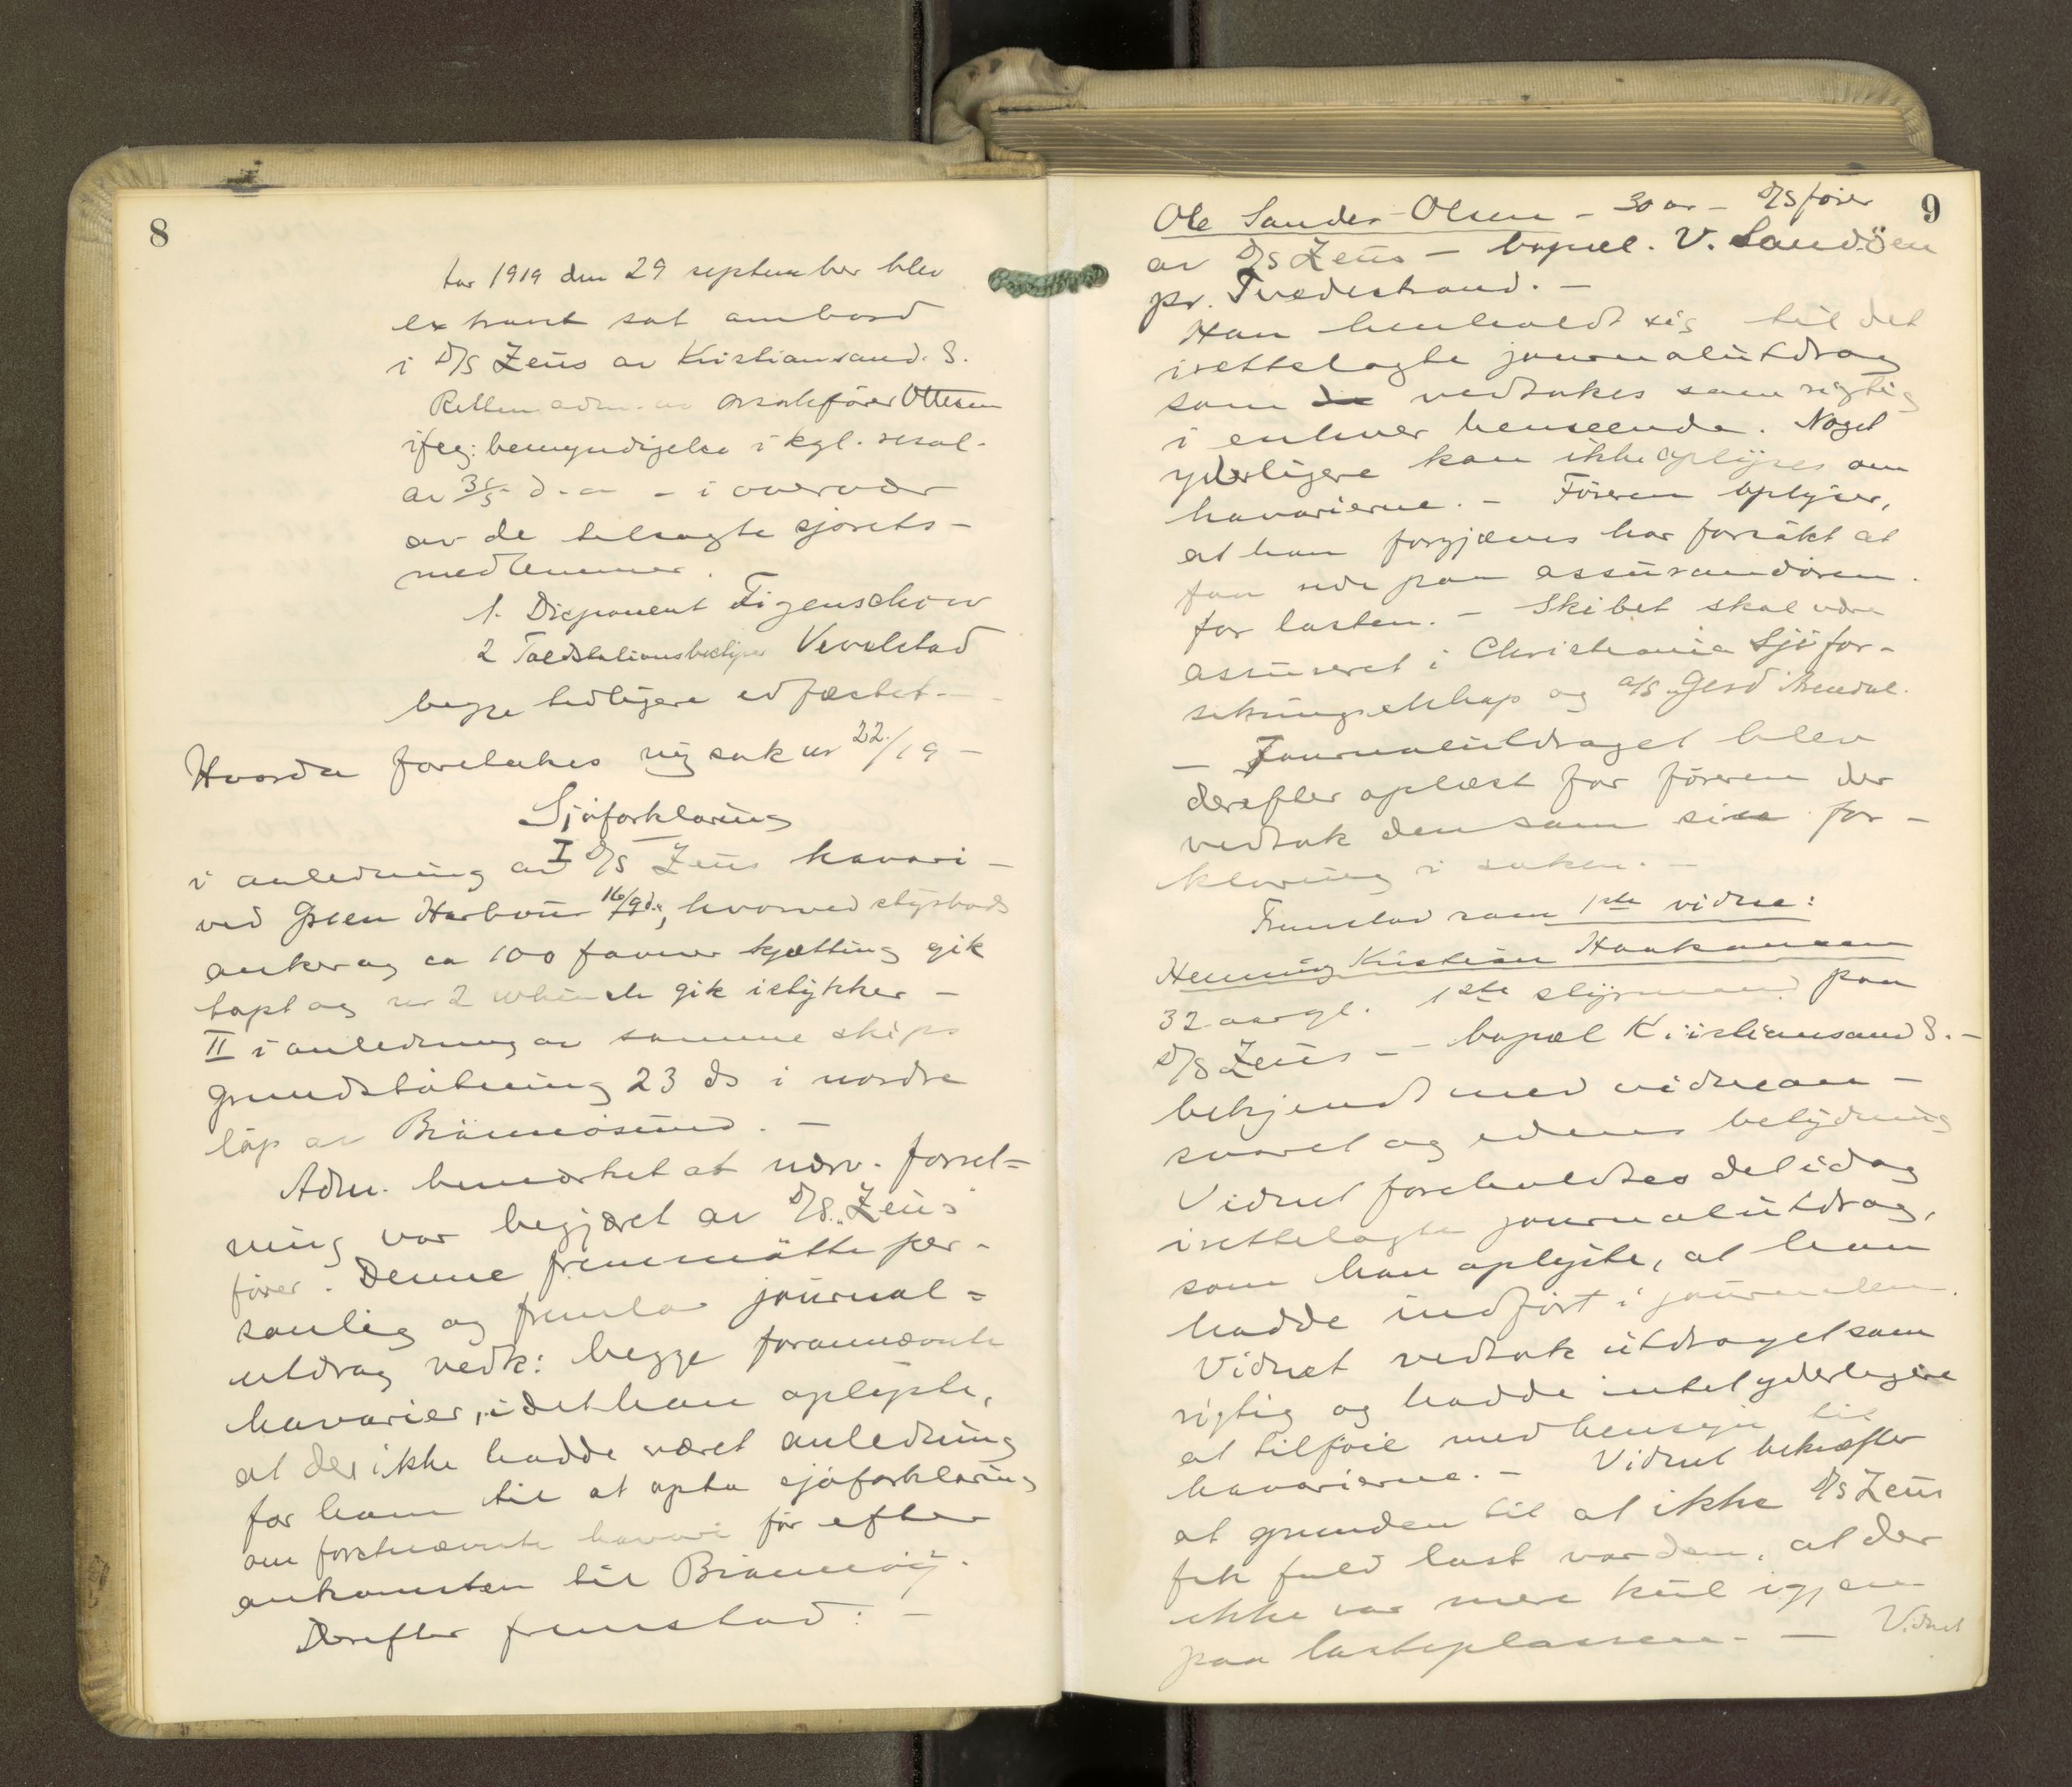 8
Aar 1919 den 29 september blev
extraret sat ombord
i D/S Zeus av Kristiansand. S.
Retten adm. av o.r.sakfører Ottesen
iføg: bemyndigelse i kgl. resol.
av 3/5 d. a. - i overvær
av de tilsagte sjørets-
medlemmer.
1. Disponent Figenschow
2 Toldstationsbestyrer Vevelstad
begge tidligere edfæstet. -
Hvorda foretakes ny sak nr 22/19 -
Sjøforklaring
i anledning av I D/S Zeus havari -
ved Green Harbour 16/9 ds, hvorved styrbords
anker og ca 100 favner kjætting gik
tapt og nr 2 whinch gik istykker -
II i anledning av samme skips
grundstøtning 23 ds i nordre
løp av Brønnøsund. -
Adm. bemerket at nærv. forret-
ning var begjært av D/S. "Zeus"
fører. Denne fremmøtte per-
sonlig og fremla journal-
utdrag vedk: begge forannævnte
havarier, idet han oplyste,
at der ikke hadde været anledning
for ham til at opta sjøforklaring
om førstnævnte havari før efter
ankomsten til Brønnøy.
Derefter fremstod: -
9
Ole Sander Olsen - 30 aar - D/S fører
av D/S Zeus - bopæl. V. Sandøen
pr. Tvedestrand. -
Han henholdt sig til det
irettelagte journalutdrag
som vedtakes som rigtig
i enhver henseende. Noget
yderligere kan ikke oplyses om
havarierne. - Føreren oplyser,
at han forgjæves har forsøkt at
faa rede paa assurandøren
for lasten. - Skibet skal være
assureret i Christiania Sjøfor-
sikringselskap og a/s Gerd Arendal.
- Journalutdraget blev
derefter oplæst for føreren der
vedtok den som sin for-
klaring i saken. -
Fremstod som 1ste vidne:
Henning Kristian Haakonsen
32 aar gl. 1ste styrmand paa
D/S Zeus - - bopæl Kristiansand S. -
bekjendt med vidnean-
svaret og edens betydning
Vidnet foreholdtes det idag
irettelagte journalutdrag,
som han oplyste, at han
hadde indført i journalen.
Vidnet vedtok utdraget som
rigtig og hadde intet yderligere
at tilføie med hensyn til
havarierne. - Vidnet bekræfter
at grunden til at ikke D/S Zeus
fik fuld last var den, at der
ikke var mere kul igjen
paa lasteplassen. - Vidnet